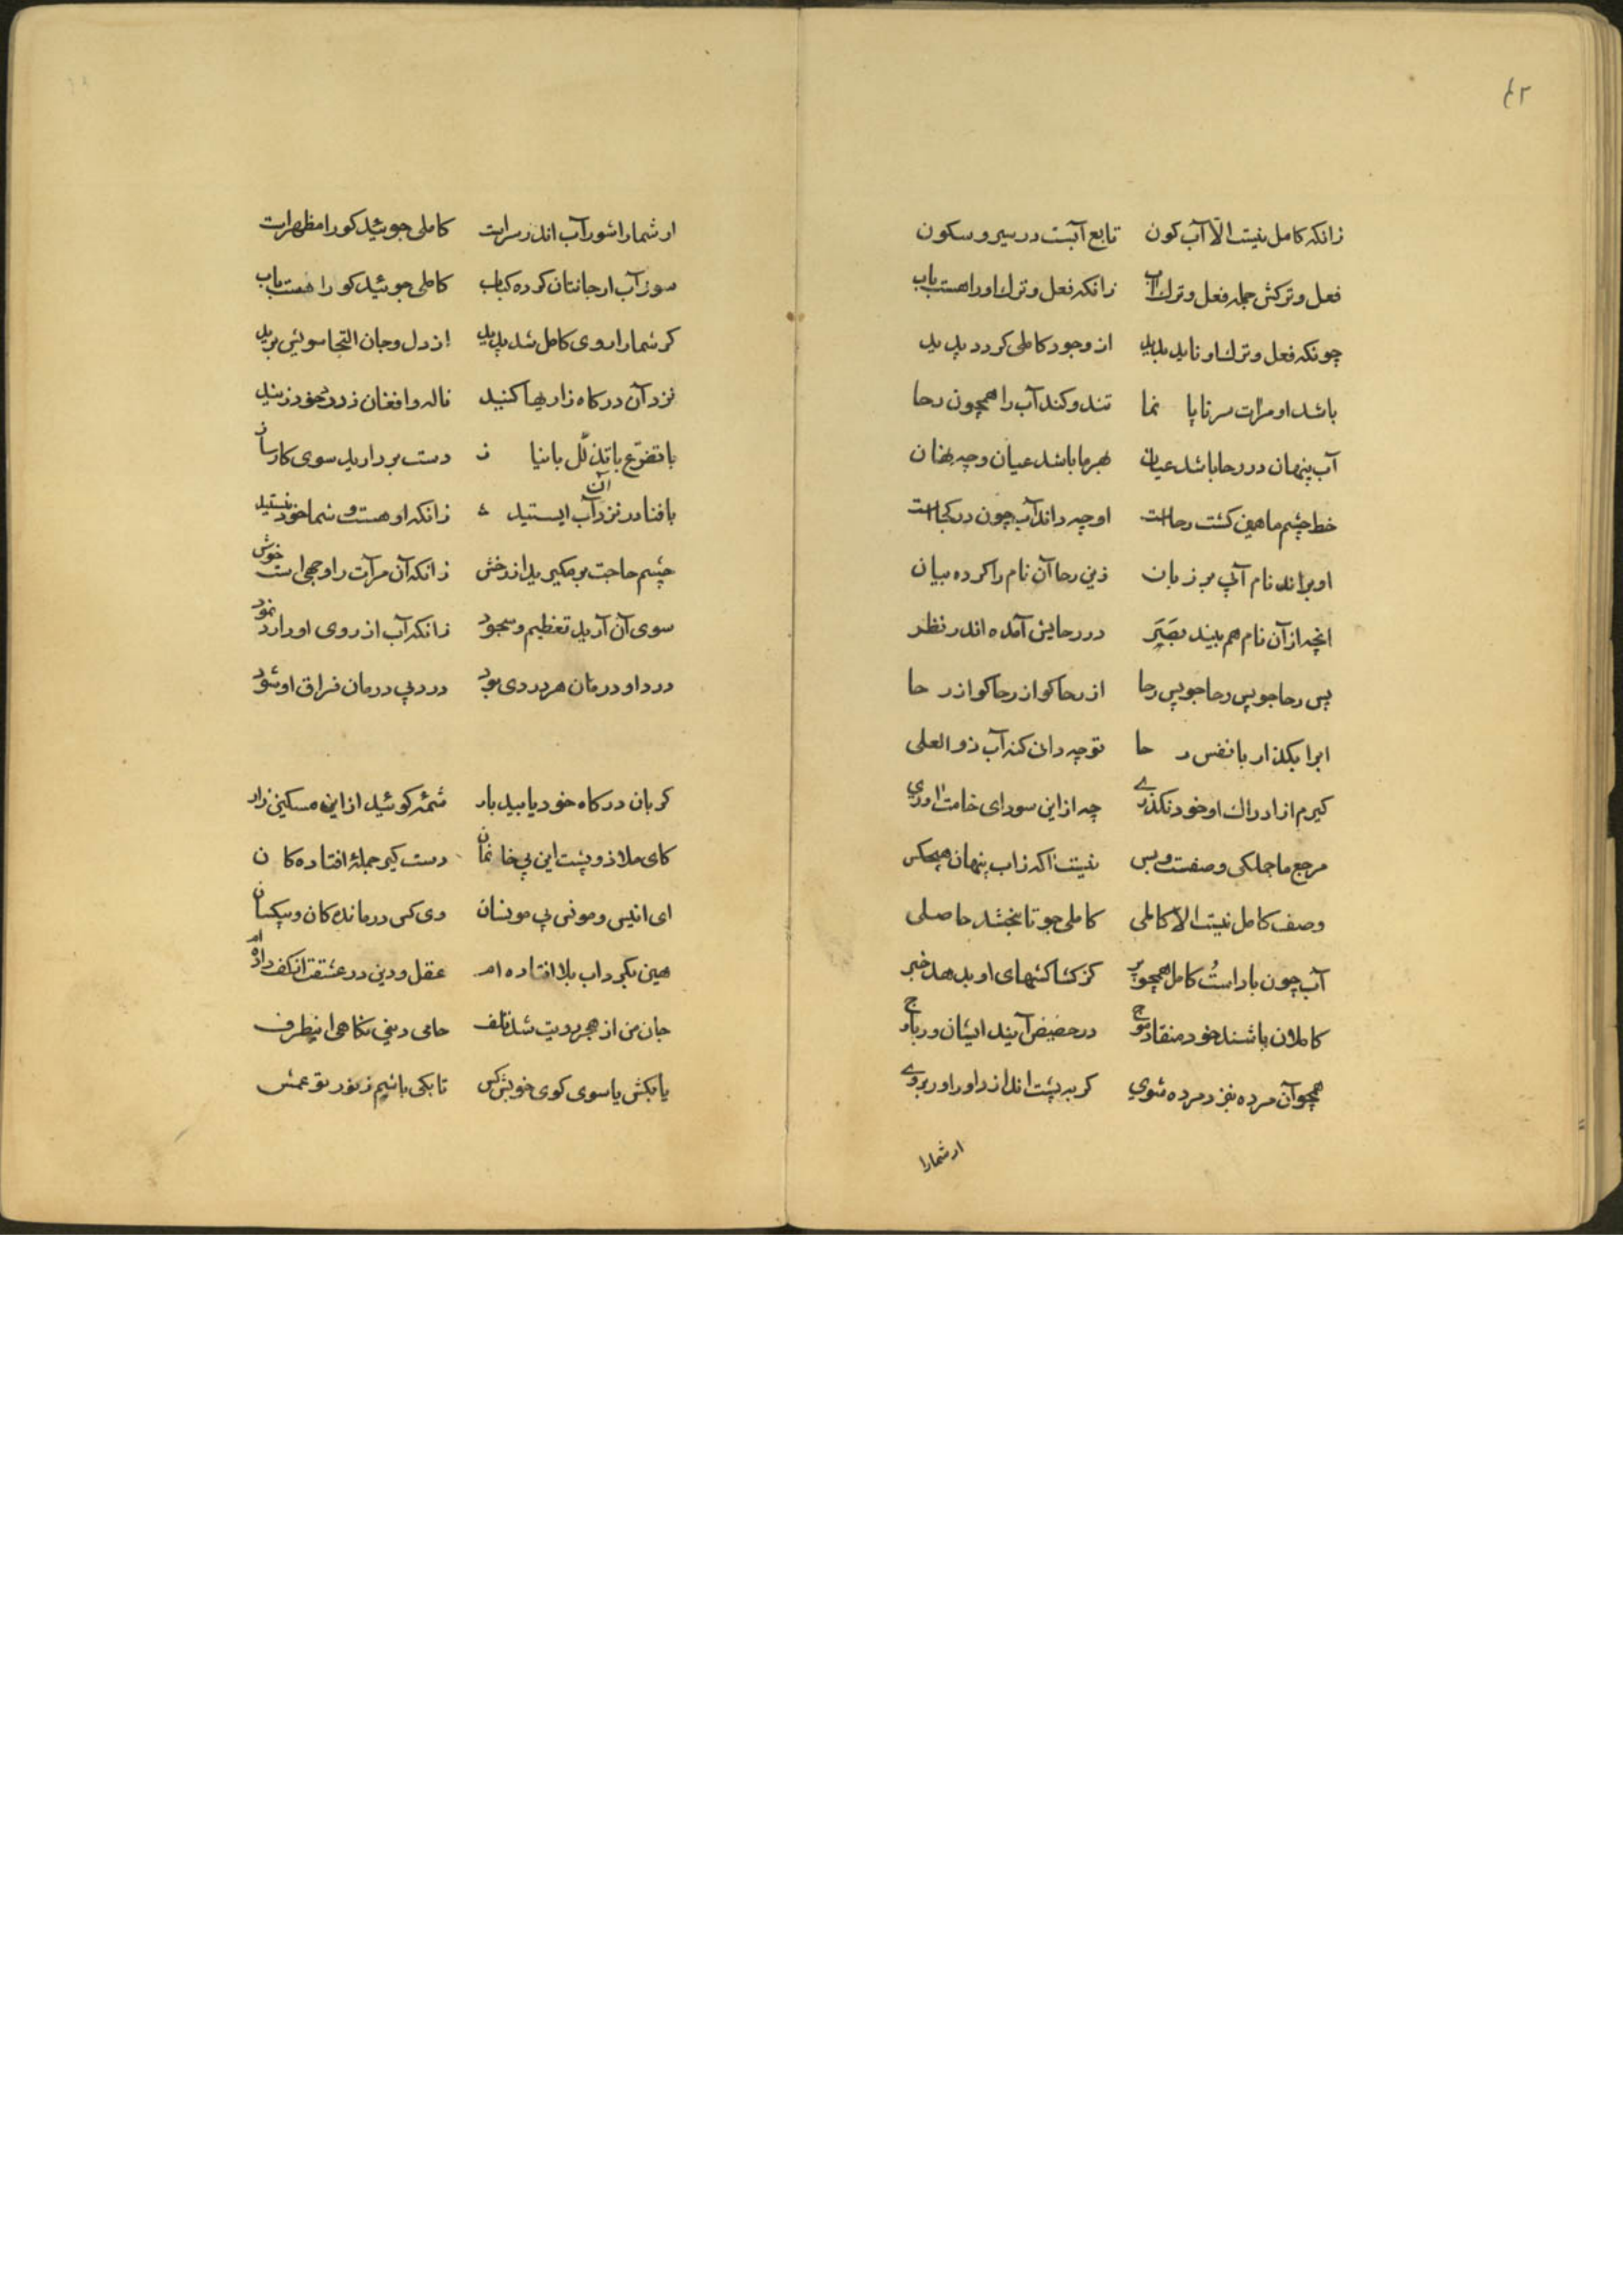 ۴۲
زانکه کامل نیست الّا آب کون تابع آبست در سیر و سکون
فعل و ترکش جمله فعل و ترک آب زانکه فعل و ترک او را هست باب
چونکه فعل و ترک او ناید پدید از وجود کاملی کردد پدید
باشد او مرات سر تا پا نما تند و کند آب را همچون رحا
آب پنهان در رحا باشد عیان بهر ما باشد عیان و چه نهان
خط چشم ما همین کشت رحاست او چه داند آب چون در کجاست
او براند نام آبی بر زبان زین رحا آن نام را کرده بیان
انچه از آن نام هم بیند بصر در رحایش آمده اندر نظر
پس رحا جو پس رحا جو پس رحا از رحا کو از رحا کو از رحا
ابرا بکذار با نفس رحا تو چه دانی کنه آب ذو العلی
کیرم از ادراک او خود نکذری چه از این سودای خامت آوری
مرجع ما جملکی وصفست و بس نیست آکه زاب پنهان هیچکس
وصف کامل نیست الّا کاملی کاملی جو تا بخشد حاصلی
آب چون باد است کامل همچو پر کز کشاکشهای او بدهد خبر
کاملان باشند خود منقاد موج در حضیض آیند ایشان ور باوج
همچو آن مرده بنزد مرده شوی کر به پشت اندازد او را ور بروی
ار شما را
ار شما را شور آب اندر سراست کاملی جوئید کو را مظهراست
سوز آب ار جانتان کرده کباب کاملی جوئید کو را هست باب
کر شما را روی کامل شد پدید از دل و جان التجا سویش برید
نزد آن درکاه زاریها کنید ناله و افغان ز درد خود زنید
با تضرّع با تذلّل با نیاز دست بردارید سوی کارساز
با فنا در نزد آن آب ایستید زانکه او هست و شما خود نیستید
چشم حاجت بر مکیرید از رخش زانکه آن مرآت را وجهی است خوش
سوی آن آرید تعظیم و سجود زانکه آب از روی او دارد نمود
درد او درمان هر دردی بود درد بی درمان فراق او شود
کر بان درکاه خود یابید بار شمّه کوئید از این مسکین زار
کای ملاذ و پشت این بی خانمان دست کیر جملهٔ افتاده کان
ای انیس و مونس بی مونسان وی کس درمانده کان و بیکسان
هین بکرداب بلا افتاده ام عقل و دین در عشقت از کف داده ام
جان من از هجر رویت شد تلف حامی دینی نکاهی اینطرف
یا بکش یا سوی کوی خویش کش تا بکی باشیم ز نور تو عمش